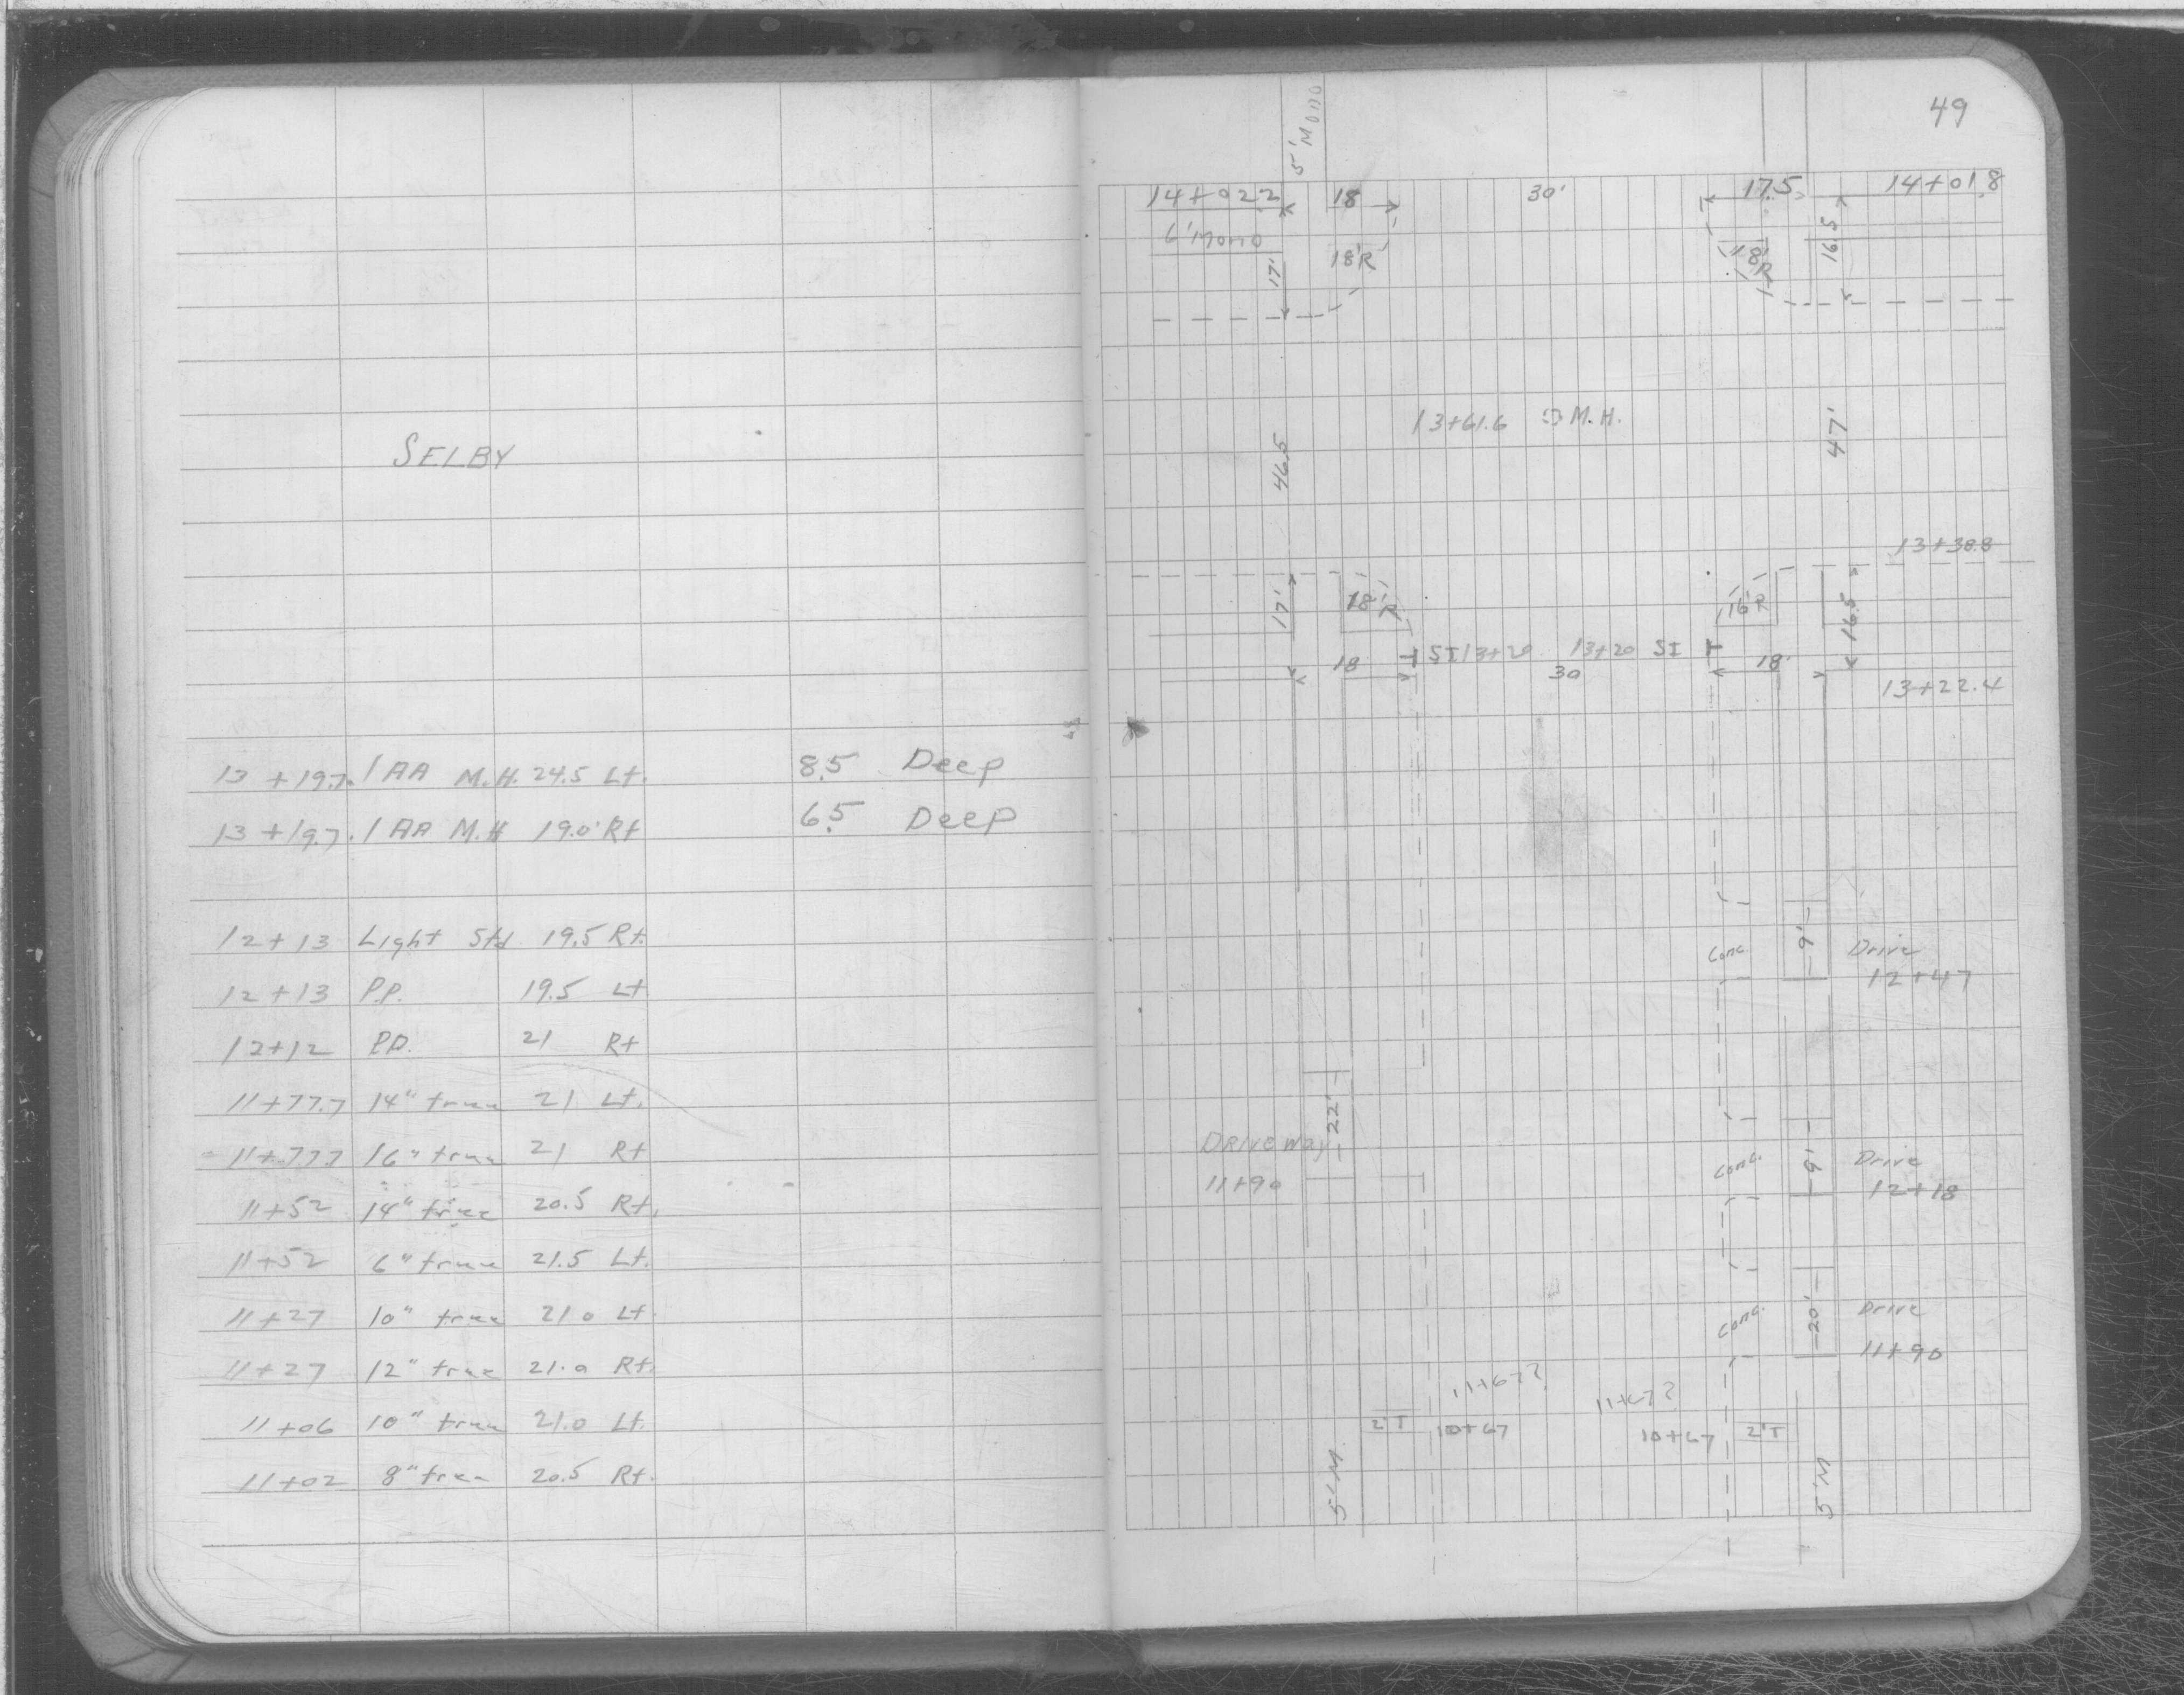 SELBY
13 +19.7 . 1 AA M.H. 24.5 Lt. 8.5 Deep
13 +19.7 . 1 AA M.H 19.0' Rt 6.5 Deep
12+13 Light Std. 19.5 Rt.
12+13 P.P. 19.5 Lt
12+12 P.P. 21 Rt
11+77.7 14" tree 21 Lt.
11+77.7 16" tree 21 Rt
11+52 14" tree 20.5 Rt.
11+52 6" tree 21.5 Lt.
11+27 10" tree 21.0 Lt.
11+27 12" tree 21.0 Rt.
11+06 10" tree 21.0 Lt.
11+02 8" tree 20.5 Rt.
49
5' Mono
14+02.2 18 30' 17.5 14+01.8
6' Mono
17' 18'R 18'R 16.5
13+61.6 M.H.
46.5 47'
13+38.8
17' 18'R 16'R 16.5
18 SI 13+20 13+20 SI 18'
30
13+22.4
Conc 9' Drive
12+47
Driveway 22'
11+90
Conc. 9' Drive
12+18
Conc. 20' Drive
11+90
11+67? 11+67?
2'T 10+67 10+67 2'T
5' M. 5' M